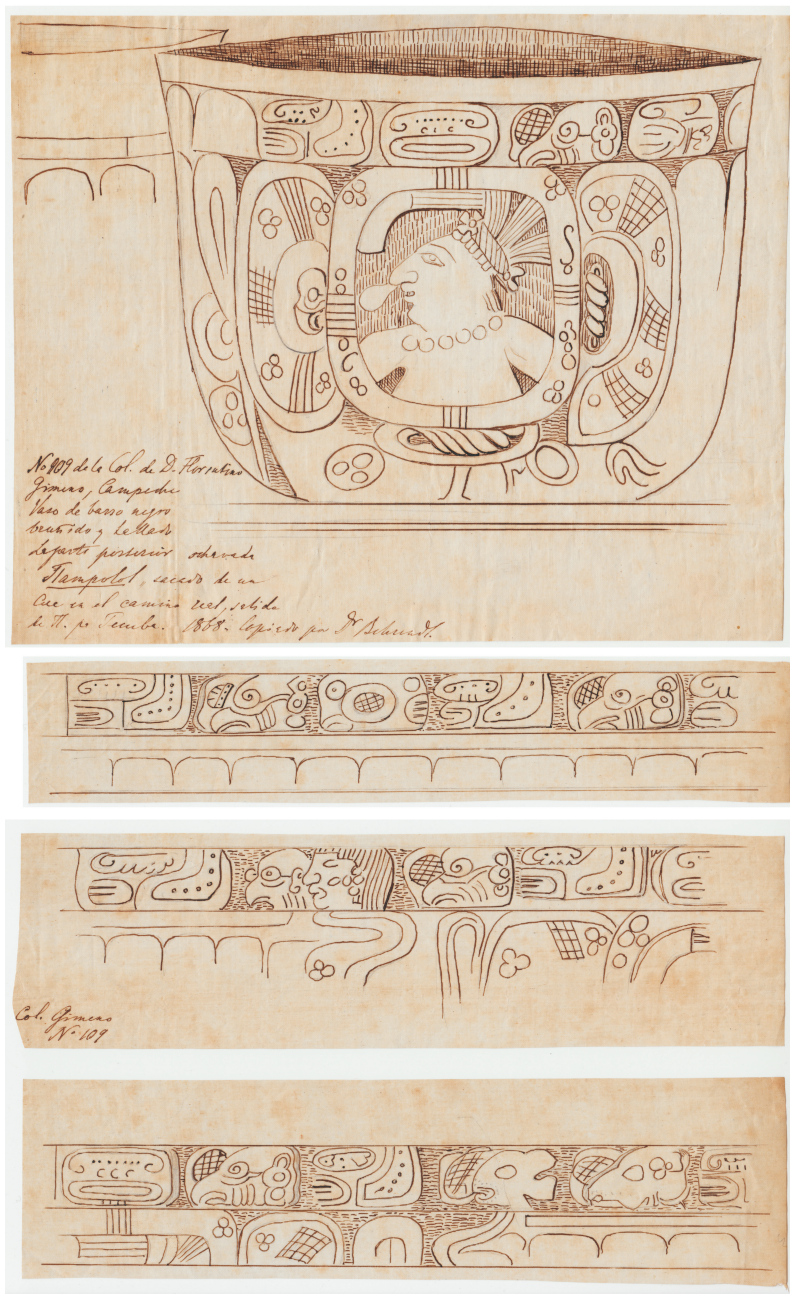 No 109 de la Col. de D. Florentino
Gimeno, Campeche
Vaso de barro negro
bruñido y tallado
La parte posterior ochavada
Tlampolol, sacado de un
Cue en el camino real, salida
de H. pa Tecuba. 1868. Copiado por Dr Behrendt.
Col. Gimeno
No 109